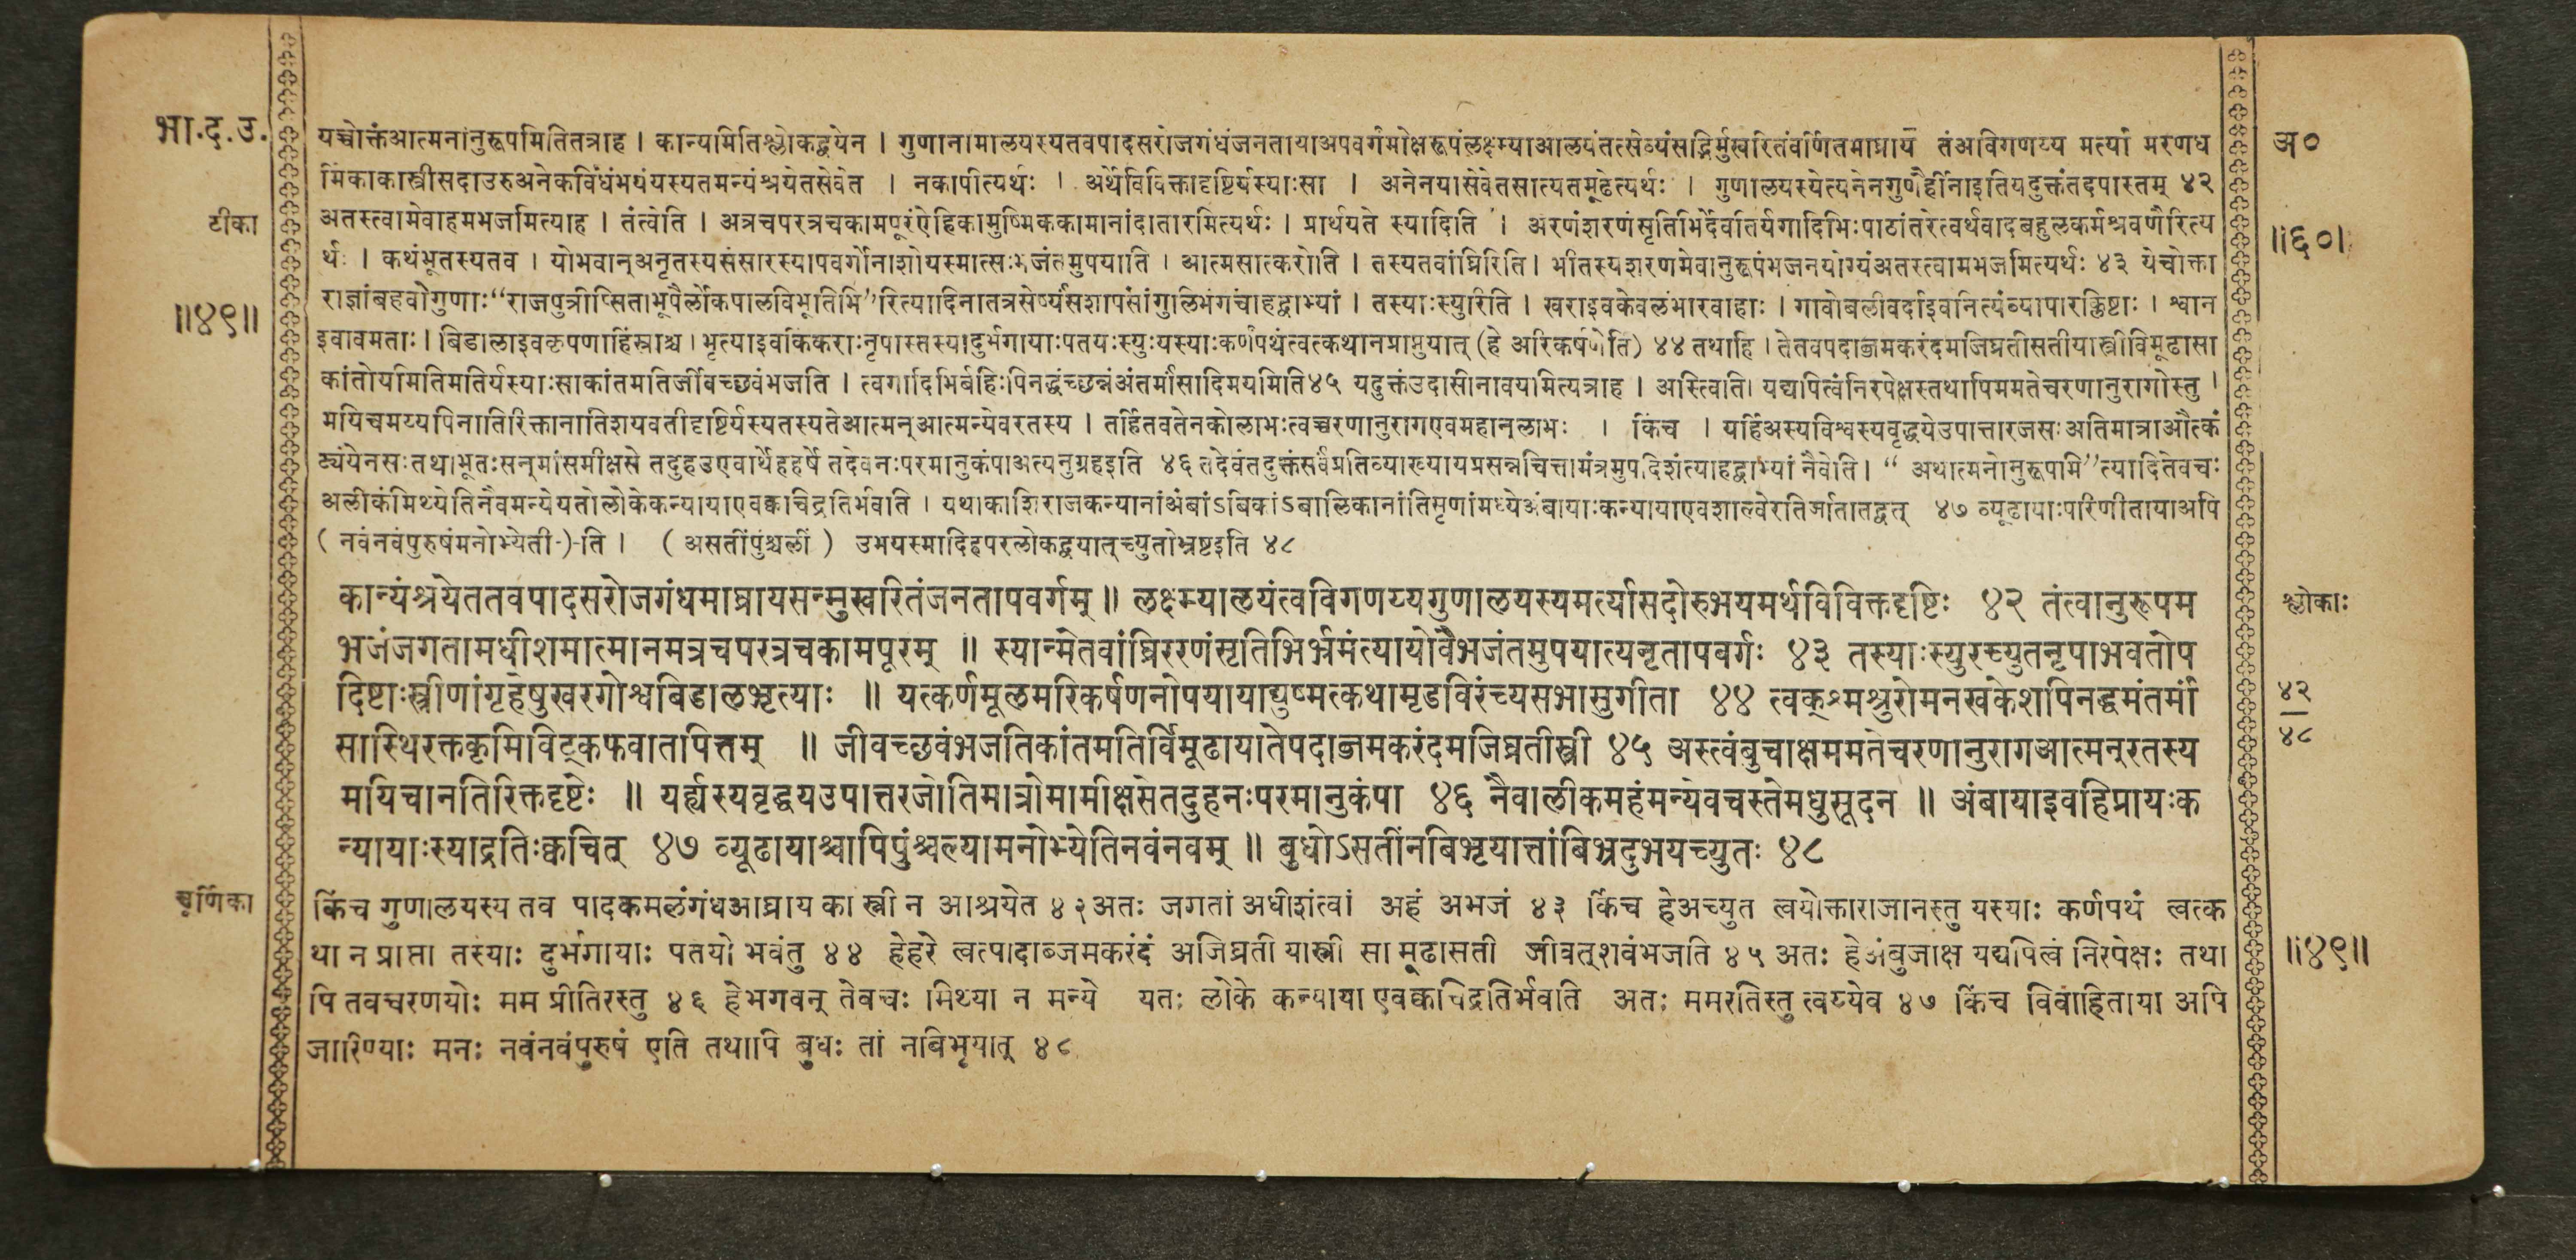 भा.द.उ.
टीका
॥४९॥
यच्चोक्तंआत्मनोनुरूपमितितत्राह । कान्यमितिश्लोकद्वयेन । गुणानामालयस्यतवपादसरोजगंधंजनतायाअपवर्गंमोक्षरूपंलक्ष्म्याआलयंतत्सेव्यंसद्भिर्मुखरितंवर्णितमाघ्राय तंअविगणय्य मर्त्या मरणध
र्मिकाकास्त्रीसदाउरुअनेकविधंभयंयस्यतमन्यंश्रयेतसेवेत । नकापीत्यर्थः । अर्थेविविक्तादृष्टिर्यस्याःसा । अनेनयासेवेतसात्यतमूढेत्यर्थः । गुणालयस्येत्यनेनगुणैर्हीनाइतियदुक्तंतदपास्तम् ४२
अतस्त्वामेवाहमभजमित्याह । तंत्वेति । अत्रचपरत्रचकामपूरंऐहिकामुष्मिककामानांदातारमित्यर्थः । प्रार्थयते स्यादिति । अरणंशरणंसृतिभिर्देवतिर्यगादिभिःपाठांतरेत्वर्थवादबहुलकर्मश्रवणैरित्य
र्थः । कथंभूतस्यतव । योभवान्अनृतस्यसंसारस्यापवर्गोनाशोयस्मात्सःभजंतमुपयाति । आत्मसात्करोति । तस्यतवांघ्रिरिति। भीतस्यशरणमेवानुरूपंभजनयोग्यंअतस्त्वामभजमित्यर्थः ४३ येचोक्ता
राज्ञांबहवोगुणाः“राजपुत्रीप्सिताभूपैर्लोकपालविभूतिभि”रित्यादिनातत्रसेर्ष्यंसशापंसांगुलिभंगंचाहद्वाभ्यां । तस्याःस्युरिति । खराइवकेवलंभारवाहाः । गावोबलीवर्दाइवनित्यंव्यापारक्लिष्टाः । श्वान
इवावमताः। बिडालाइवकृपणाहिंस्राश्च । भृत्याइवकिंकराःनृपास्तस्यादुर्भगायाःपतयःस्युःयस्याःकर्णपथंत्वत्कथानप्राप्नुयात् (हे अरिकर्षणेति) ४४ तथाहि । तेतवपदाब्जमकरंदमजिघ्रतीसतीयास्त्रीविमूढासा
कांतोयमितिमतिर्यस्याःसाकांतमतिर्जीवच्छवंभजति । त्वगादिभिर्बहिःपिनद्धंच्छन्नंअंतर्मांसादिमयमिति४५ यदुक्तंउदासीनावयमित्यत्राह । अस्त्विति। यद्यपित्वंनिरपेक्षस्तथापिममतेचरणानुरागोस्तु ।
मयिचमय्यपिनातिरिक्तानातिशयवतीदृष्टिर्यस्यतस्यतेआत्मन्आत्मन्येवरतस्य । तर्हितवतेनकोलाभःत्वच्चरणानुरागएवमहान्लाभः । किंच । यर्हिअस्यविश्वस्यवृद्धयेउपात्तारजसःअतिमात्राऔत्कं
ठ्यंयेनसःतथाभूतःसन्मांसमीक्षसे तदुहउएवार्थेहहर्षे तदेवनःपरमानुकंपाअत्यनुग्रहइति ४६ तदेवंतदुक्तंसर्वंप्रतिव्याख्यायप्रसन्नचित्तामंत्रमुपदिशंत्याहद्वाभ्यां नैवेति। “ अथात्मनोनुरूपमि”त्यादितेवचः
अलीकंमिथ्येतिनैवमन्येयतोलोकेकन्यायाएवक्वचिद्रतिर्भवति । यथाकाशिराजकन्यानांअंबांऽबिकांऽबालिकानांतिसृणांमध्येअंबायाःकन्यायाएवशाल्वेरतिर्जातातद्वत् ४७ व्यूढायाःपरिणीतायाअपि
( नवंनवंपुरुषंमनोभ्येती-)-ति । ( असतींपुंश्चलीं ) उभयस्मादिहपरलोकद्वयात्च्युतोभ्रष्टइति ४८
कान्यंश्रयेततवपादसरोजगंधमाघ्रायसन्मुखरितंजनतापवर्गम् ॥ लक्ष्म्यालयंत्वविगणय्यगुणालयस्यमर्त्यासदोरुभयमर्थविविक्तदृष्टिः ४२ तंत्वानुरूपम
भजंजगतामधीशमात्मानमत्रचपरत्रचकामपूरम् ॥ स्यान्मेतवांघ्रिररणंसृतिभिर्भ्रमंत्यायोवैभजंतमुपयात्यनृतापवर्गः ४३ तस्याःस्युरच्युतनृपाभवतोप
दिष्टाःस्त्रीणांगृहेषुखरगोश्वबिडालभृत्याः ॥ यत्कर्णमूलमरिकर्षणनोपयायाद्युष्मत्कथामृडविरंच्यसभासुगीता ४४ त्वक्श्मश्रुरोमनखकेशपिनद्धमंतर्मां
सास्थिरक्तकृमिविट्कफवातपित्तम् ॥ जीवच्छवंभजतिकांतमतिर्विमूढायातेपदाब्जमकरंदमजिघ्रतीस्त्री ४५ अस्त्वंबुचाक्षममतेचरणानुरागआत्मन्रतस्य
मयिचानतिरिक्तदृष्टेः ॥ यर्ह्यस्यवृद्धयउपात्तरजोतिमात्रोमामीक्षसेतदुहनःपरमानुकंपा ४६ नैवालीकमहंमन्येवचस्तेमधुसूदन ॥ अंबायाइवहिप्रायःक
न्यायाःस्याद्रतिःक्वचित् ४७ व्यूढायाश्चापिपुंश्चल्यामनोभ्येतिनवंनवम् ॥ बुधोऽसतींनबिभृयात्तांबिभ्रदुभयच्युतः ४८
चूर्णिका
किंच गुणालयस्य तव पादकमलंगंधआघ्राय का स्त्री न आश्रयेत ४२अतः जगतां अधीशंत्वां अहं अभजं ४३ किंच हेअच्युत त्वयोक्ताराजानस्तु यस्याः कर्णपथं त्वत्क
था न प्राप्ता तस्याः दुर्भगायाः पतयो भवंतु ४४ हेहरे त्वत्पादाब्जमकरंदं अजिघ्रती यास्त्री सा मूढासती जीवत्शवंभजति ४५ अतः हेअंबुजाक्ष यद्यपित्वं निरपेक्षः तथा
पि तवचरणयोः मम प्रीतिरस्तु ४६ हेभगवन् तेवचः मिथ्या न मन्ये यतः लोके कन्याया एवक्वचिद्रतिर्भवति अतः ममरतिस्तु त्वय्येव ४७ किंच विवाहिताया अपि
जारिण्याः मनः नवंनवंपुरुषं एति तथापि बुधः तां नबिभृयात् ४८
अ०
॥६०॥
श्लोकाः
४२
४८
॥४९॥